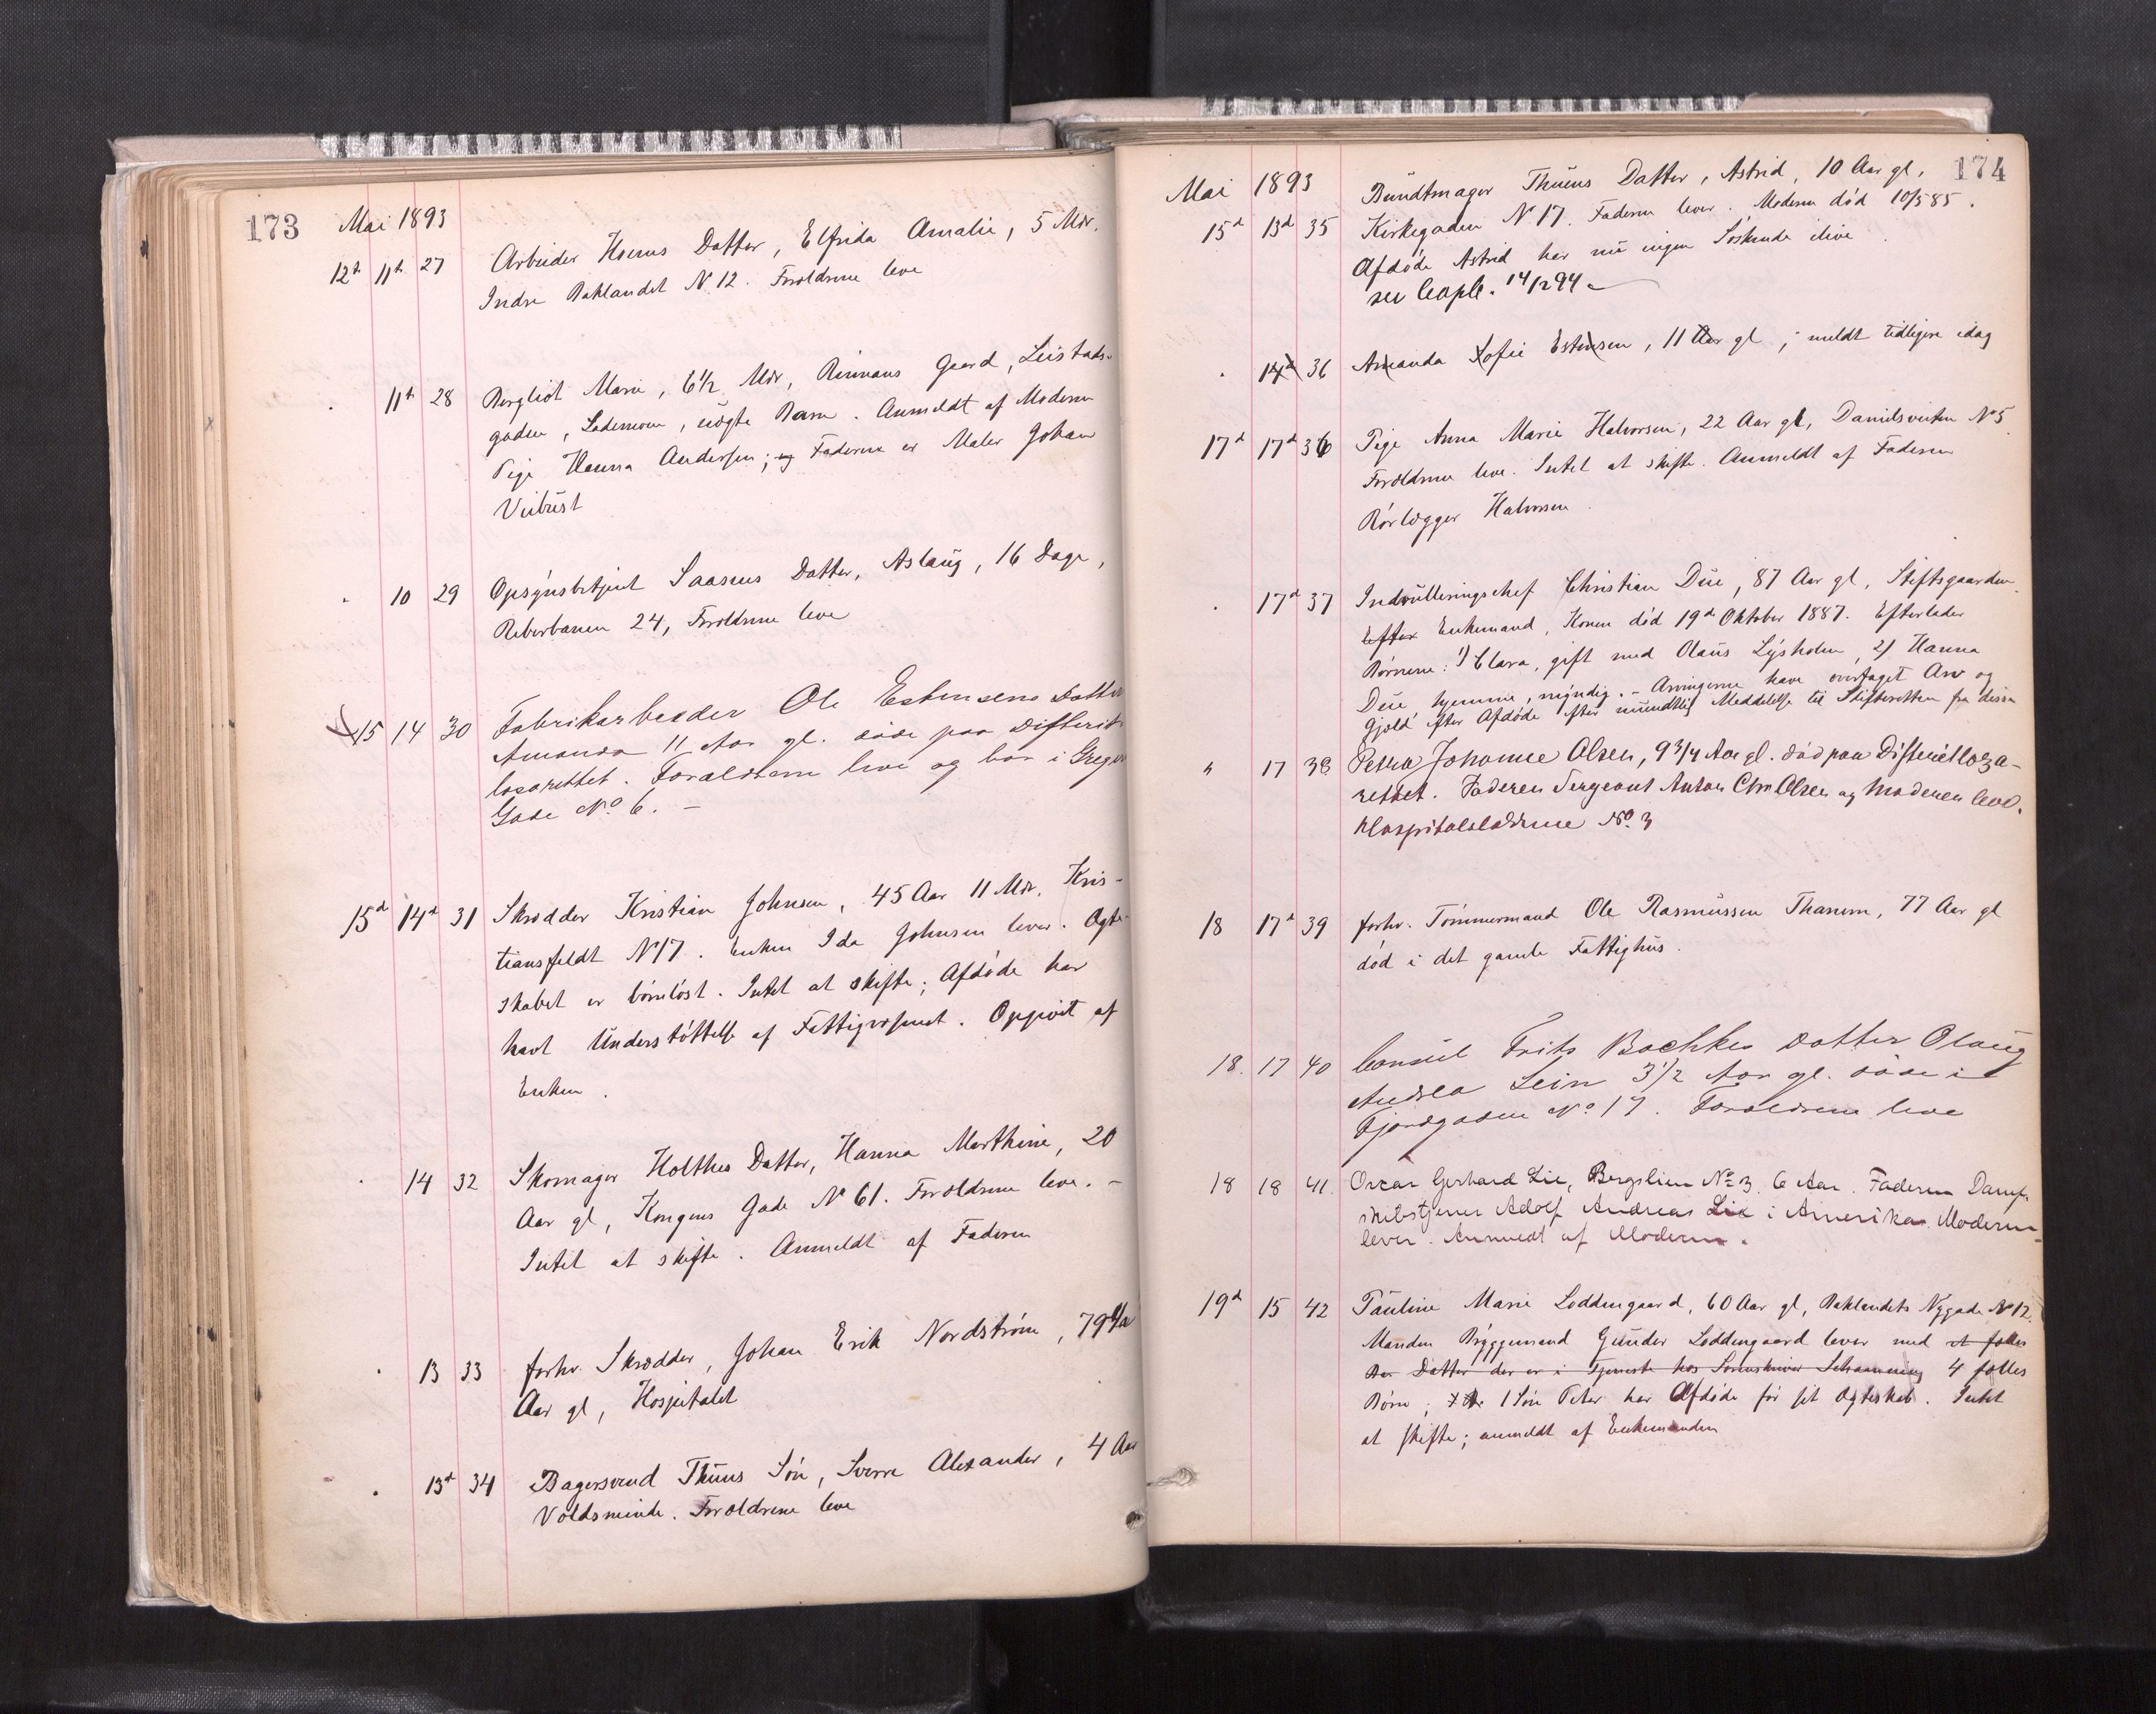 173 Mai 1893
12te 11te 27 Arbeider Hoems Datter, Elfrida Amalie, 5 Mdr.
Indre Baklandet No 12. Forældrene leve
. 11te 28 Bergliot Marie, 6 1/2 Mdr, Rinnans Gaard, Leistads-
gaden, Lademoen, uægte Barn. Anmeldt af Moderen
Pige Hanna Andersen; og Faderen er Maler Johan
Viibust
. 10 29 Opsynsbetjent Saasens Datter, Aslaug, 16 Dage,
Reberbanen 24, Forældrene leve
15 14 30 Fabrikarbeider Ole Estensens Datter
Amanda 11 Aar gl. døde paa Difterit-
lasarettet. Forældrene leve og bor i Gregus
Gade No. 6. -
15d 14d 31 Skrædder Kristian Johnsen, 45 Aar 11 Mdr. Kris-
tiansfeldt No 17. Enken Ida Johnsen lever. Ægte-
skabet er børnløst. Intet at skifte; Afdøde har
havt Understøttelse af Fattigvæsenet. Opgivet af
Enken.
. 14 32 Skomager Holthes Datter, Hanna Marthine, 20
Aar gl, Kongens Gade No 61. Forældrene leve. -
Intet at skifte. Anmeldt af Faderen
. 13 33 forhv. Skrædder, Johan Erik Nordstrøm, 79
Aar gl, Hospitalet
. 13d 34 Bagersvend Thuns Søn, Sverre Alexander, 4 Aar
Voldsminde. Forældrene leve
174
Mai 1893 Bundtmager Thuens Datter, Astrid, 10 Aar gl,
15d 13d 35 Kirkegaden No 17. Faderen lever. Moderen død 10/5 85.
Afdøde Astrid har nu ingen Søskende ilive.
see Copb. 14/12 94
. 14d 36 Amanda Sofie Estensen, 11 Aar gl; meldt tidligere idag
17d 17d 36 Pige Anna Marie Halvorsen, 22 Aar gl, Danielsveiten No 5
Forældrene leve. Intet at skifte. Anmeldt af Faderen
Rørlægger Halvorsen
. 17d 37 Indrulleringschef Christian Due, 87 Aar gl, Stiftsgaarden.
Efter Enkemand, Konen død 19d Oktober 1887. Efterlader
Børnene: 1) Clara, gift med Olaus Lysholm, 2) Hanna
Due, hjemme, myndig. - Arvingerne have overtaget Arv og
Gjæld efter Afdøde efter mundtlig Meddelelse til Skifteretten fra disse
" 17 38 Petra Johanne Olsen, 9 3/4 Aar gl. død paa Difteritlaza-
rettet. Faderen Sergeant Anton Chr. Olsen og Moderen leve.
Hospitalsløkkene No. 3
18 17d 39 forhv. Tømmermand Ole Rasmussen Thanem, 77 Aar gl
død i det gamle Fattighus.
18. 17 40 Consul Frits Bachkes Datter Olaug
Andrea Lein 3 1/2 Aar gl. døde i
Fjordgaden No. 17. Forældrene leve
18 18 41. Oscar Gerhard Lie, Bergslien No 3. 6 Aar. Faderen Damp-
skibstjener Adolf Andreas Lie i Amerika. Moderen
lever. Anmeldt af Moderen.
19d 15 42 Pauline Marie Loddengaard, 60 Aar gl, Baklandets Nygade No 12.
Manden Bryggemand Gunder Loddengaard lever med et fælles
Bar Datter der er i Tjeneste hos Sorenskriver Schaanning 4 fælles
Børn; 1 Søn Peter har Afdøde før sit Ægteskab. Intet
at skifte; anmeldt af Enkemanden